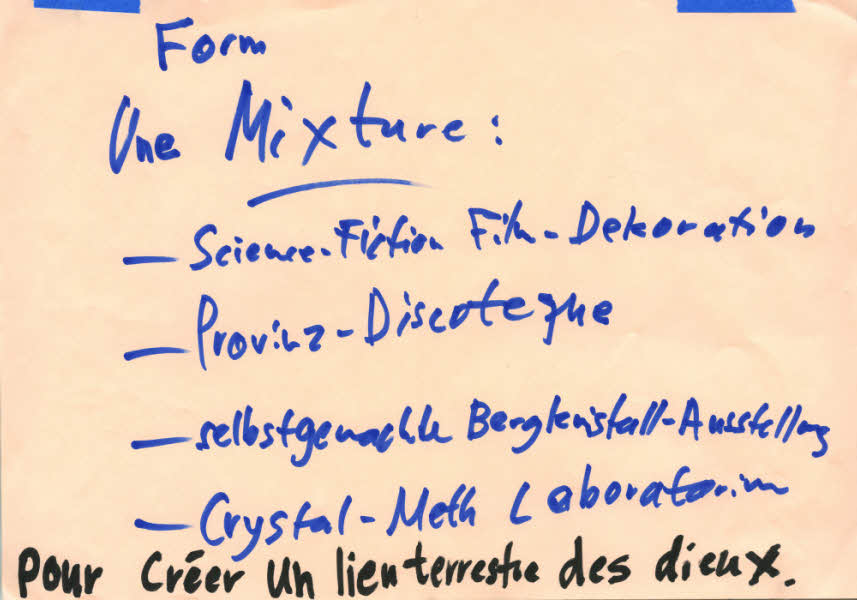 Form
Une Mixture:
– Science-Fiction Film-Dekoration
– Provinz-Discoteque
– selbstgemachte Bergkristall-Ausstellung
– Crystal-Meth Laboratorium
Pour Créer un lien terrestre des dieux.